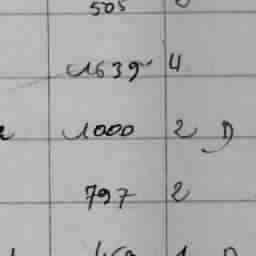 505
1639 4
1000 2 D
797 2